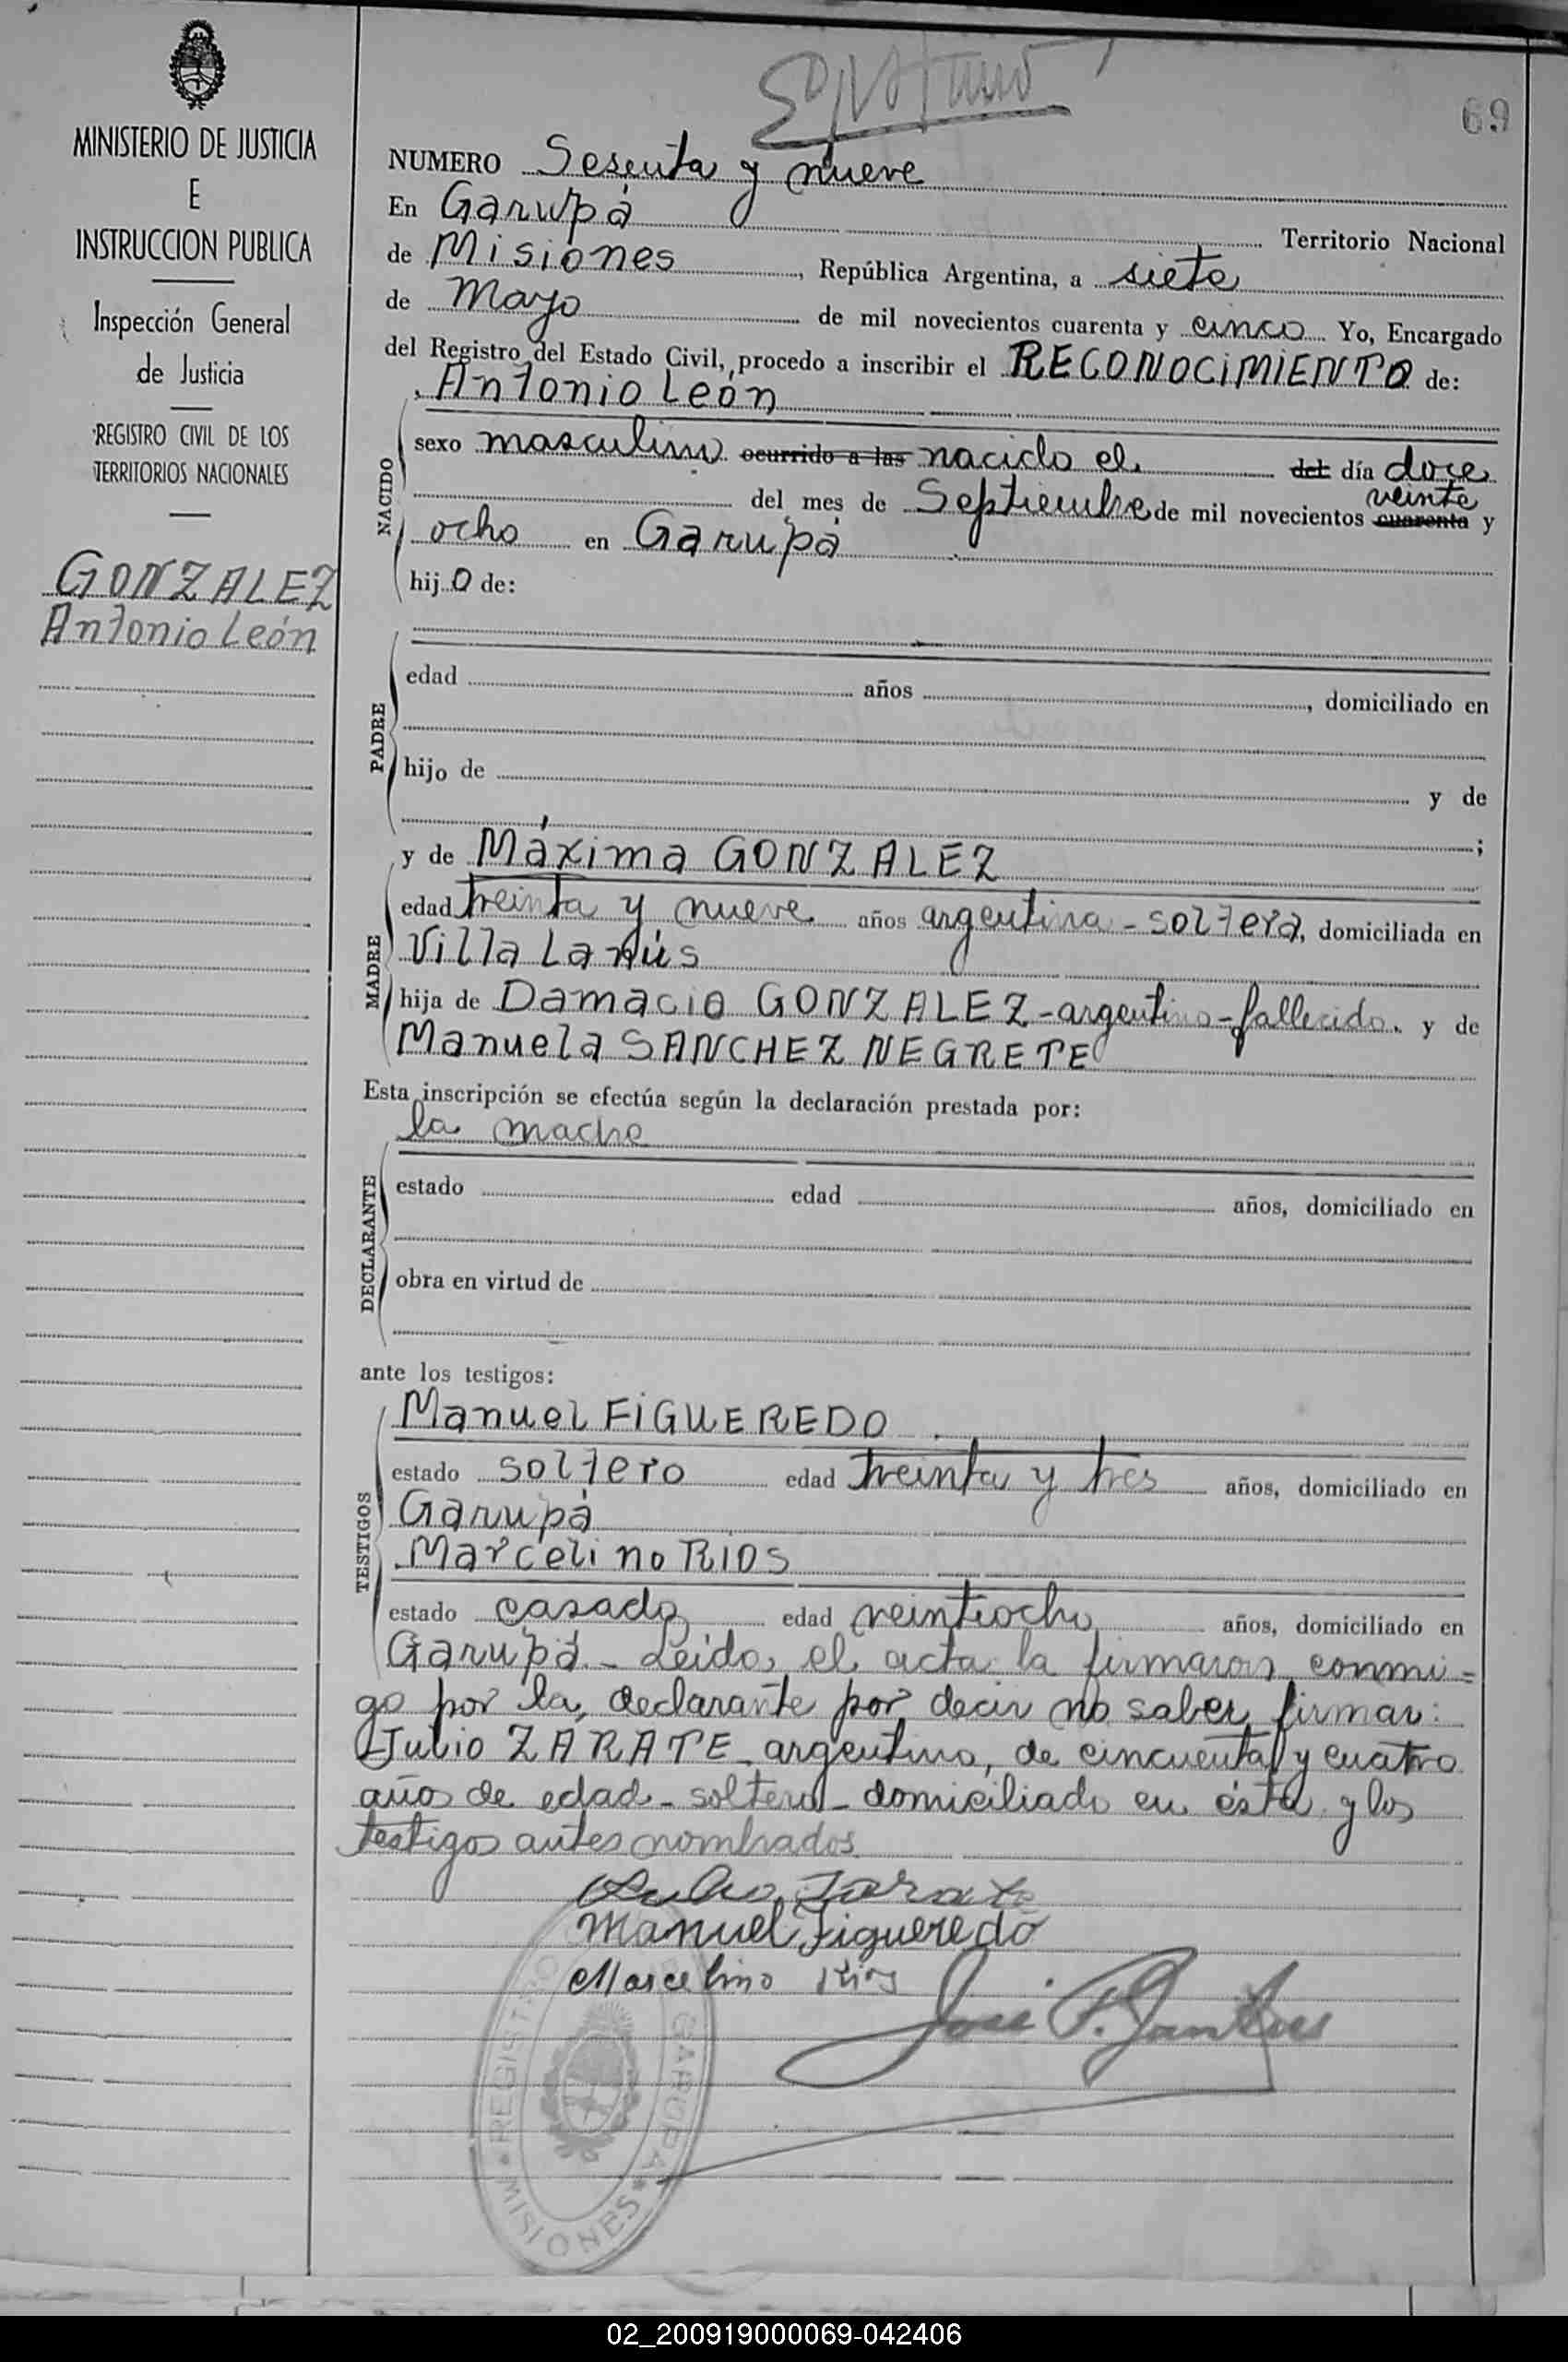 MINISTERIO DE JUSTICIA
E
INSTRUCCION PUBLICA
Inspección General
de Justicia
REGISTRO CIVIL DE LOS
TERRITORIOS NACIONALES
GONZALEZ
Antonio León
69
NUMERO Sesenta y nueve
En Garupá Territorio Nacional
de Misiones, República Argentina, a siete
de Mayo de mil novecientos cuarenta y cinco Yo, Encargado
del Registro del Estado Civil, procedo a inscribir el RECONOCIMIENTO de:
Antonio León
NACIDO
sexo masculino ocurrido a las nacido el del día doce
veinte
del mes de Septiembre de mil novecientos cuarenta y
ocho en Garupá
hijo de:
PADRE
edad años , domiciliado en
hijo de y de
;
y de Máxima GONZALEZ
MADRE
edad treinta y nueve años argentina - soltera, domiciliada en
Villa Lanús
hija de Damacio GONZALEZ - argentino - fallecido. y de
Manuela SANCHEZ NEGRETE
Esta inscripción se efectúa según la declaración prestada por:
la madre
DECLARANTE
estado edad años, domiciliado en
obra en virtud de
ante los testigos:
TESTIGOS
Manuel FIGUEREDO
estado soltero edad treinta y tres años, domiciliado en
Garupá
Marcelino RIOS
estado casado edad veintiocho años, domiciliado en
Garupá. - Leido, el acta la firmaron conmi=
go por la declarante por decir no saber firmar:
Julio ZARATE argentino, de cincuenta y cuatro
años de edad - soltero - domiciliado en ésta y los
testigos antes nombrados
Julio Zarate
Manuel Figueredo
Marcelino Rios
José P.
REGISTRO GARUPA
MISIONES
02_200919000069-042406